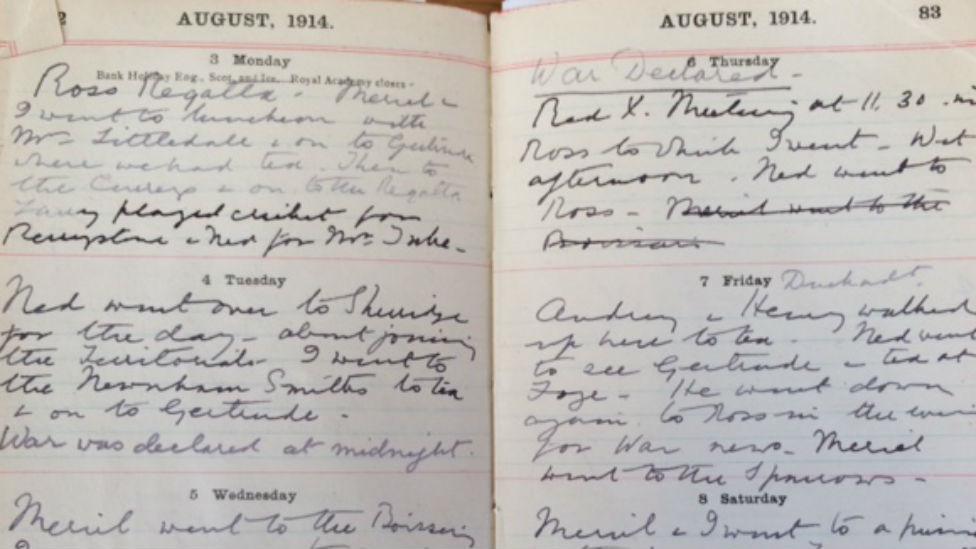 2
AUGUST, 1914.
3 Monday
Bank Holiday Eng., Scot. and Ire. Royal Academy closes
Ross Regatta - Meriel &
I went to luncheon with
Mrs Littledale & on to Gertrude
where we had tea. Then to
the & on to the Regatta
played cricket for
& Ned for Mr
4 Tuesday
Ned went over to
for the day - about joining
the Territorials. I went to
the Newnham Smiths to tea
& on to Gertrude -
War was declared at midnight.
5 Wednesday
Meriel went to the
AUGUST, 1914.
83
6 Thursday
War Declared -
Red X. Meeting at 11.30 in
Ross to which I went - Wet
afternoon. Ned went to
Ross - Meriel went to the
7 Friday
Audrey & Henry walked
up here to tea. Ned went
to see Gertrude & tea at
He went down
again to Ross in the
for War news. Meriel
went to the Sparrows -
8 Saturday
Meriel & I went to a